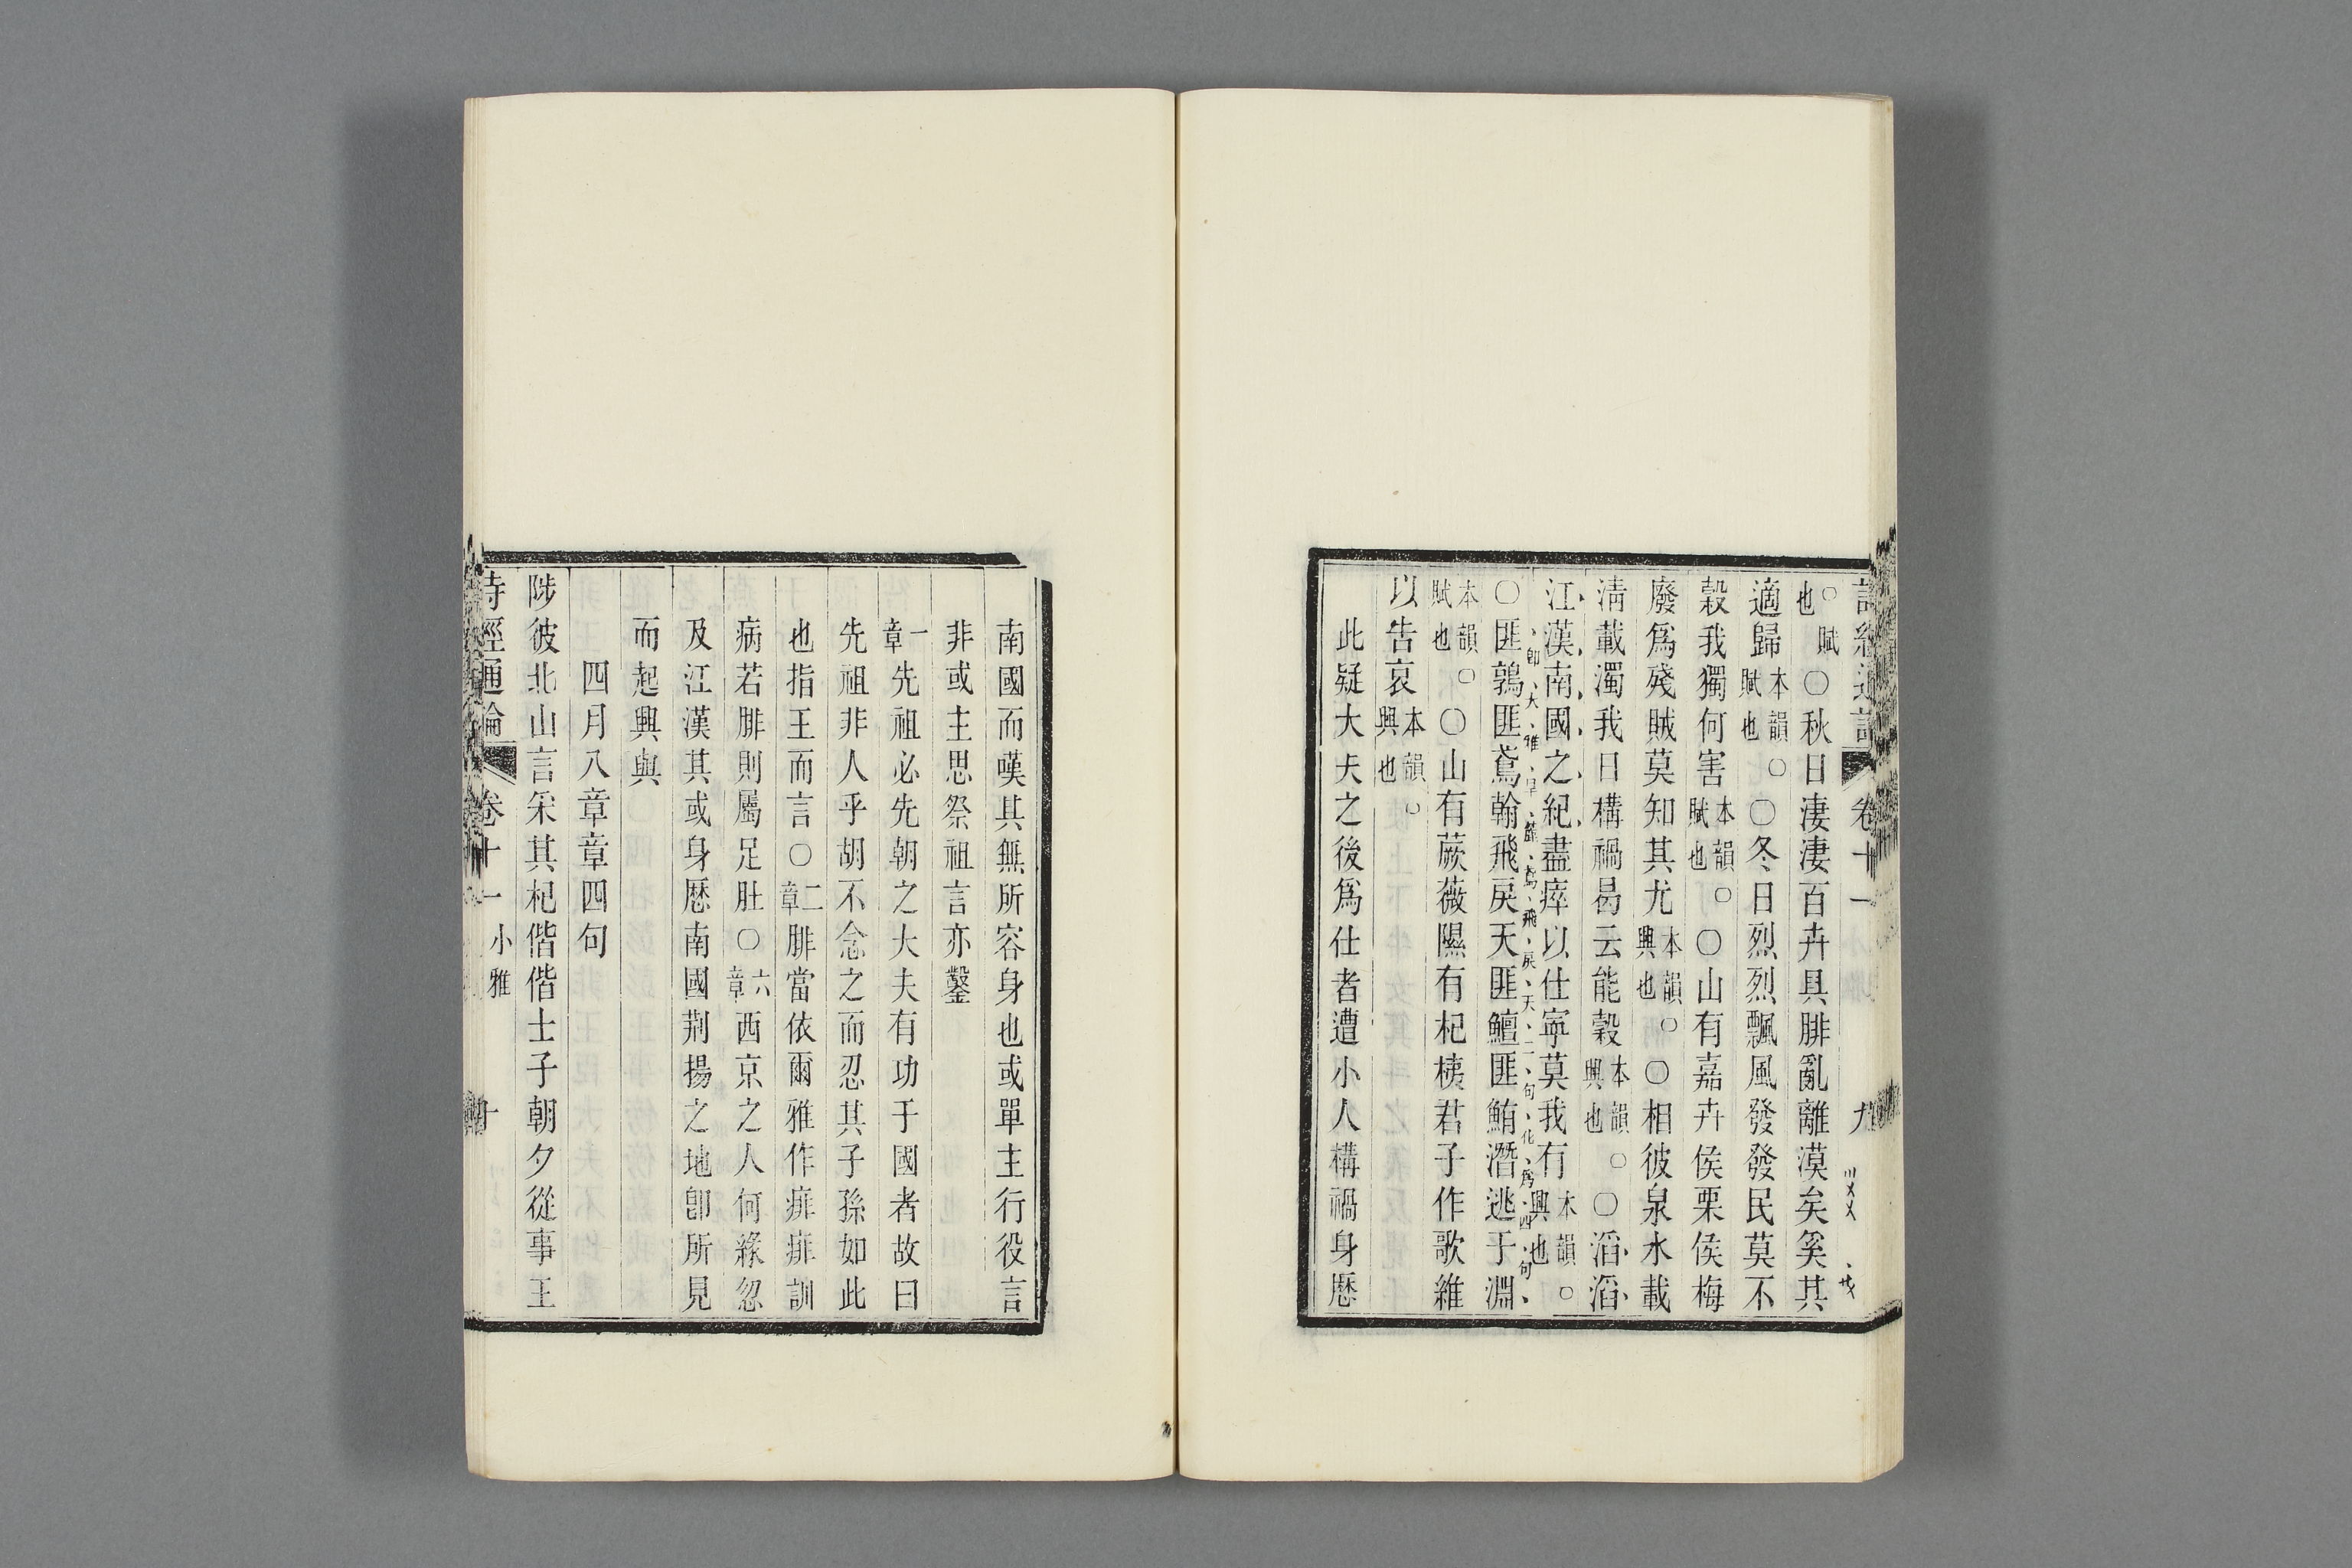 詩經通論 卷十一 九
也○賦○秋日淒淒百卉具腓亂離漠矣奚其
適歸本韻○賦也○冬日烈烈飄風發發民莫不
穀我獨何害本韻○賦也○山有嘉卉侯栗侯梅
廢爲殘賊莫知其尤本韻○興也○相彼泉水載
清載濁我日構禍曷云能穀本韻○興也○滔滔
江漢南國之紀盡瘁以仕寧莫我有本韻○興也
卽大雅旱麓鳶飛戾天二句化爲四句
○匪鶉匪鳶翰飛戾天匪鱣匪鮪潛逃于淵
本韻○賦也○山有蕨薇隰有杞桋君子作歌維
以告哀本韻○興也
此疑大夫之後爲仕者遭小人構禍身歷
南國而嘆其無所容身也或單主行役言
非或主思祭祖言亦鑿
一章先祖必先朝之大夫有功于國者故曰
先祖非人乎胡不念之而忍其子孫如此
也指王而言○二章腓當依爾雅作痱痱訓
病若腓則屬足肚○六章西京之人何緣忽
及江漢其或身歷南國荆揚之地卽所見
而起興與
四月八章章四句
陟彼北山言采其杞偕偕士子朝夕從事王
詩經通論 卷十一 小雅 十